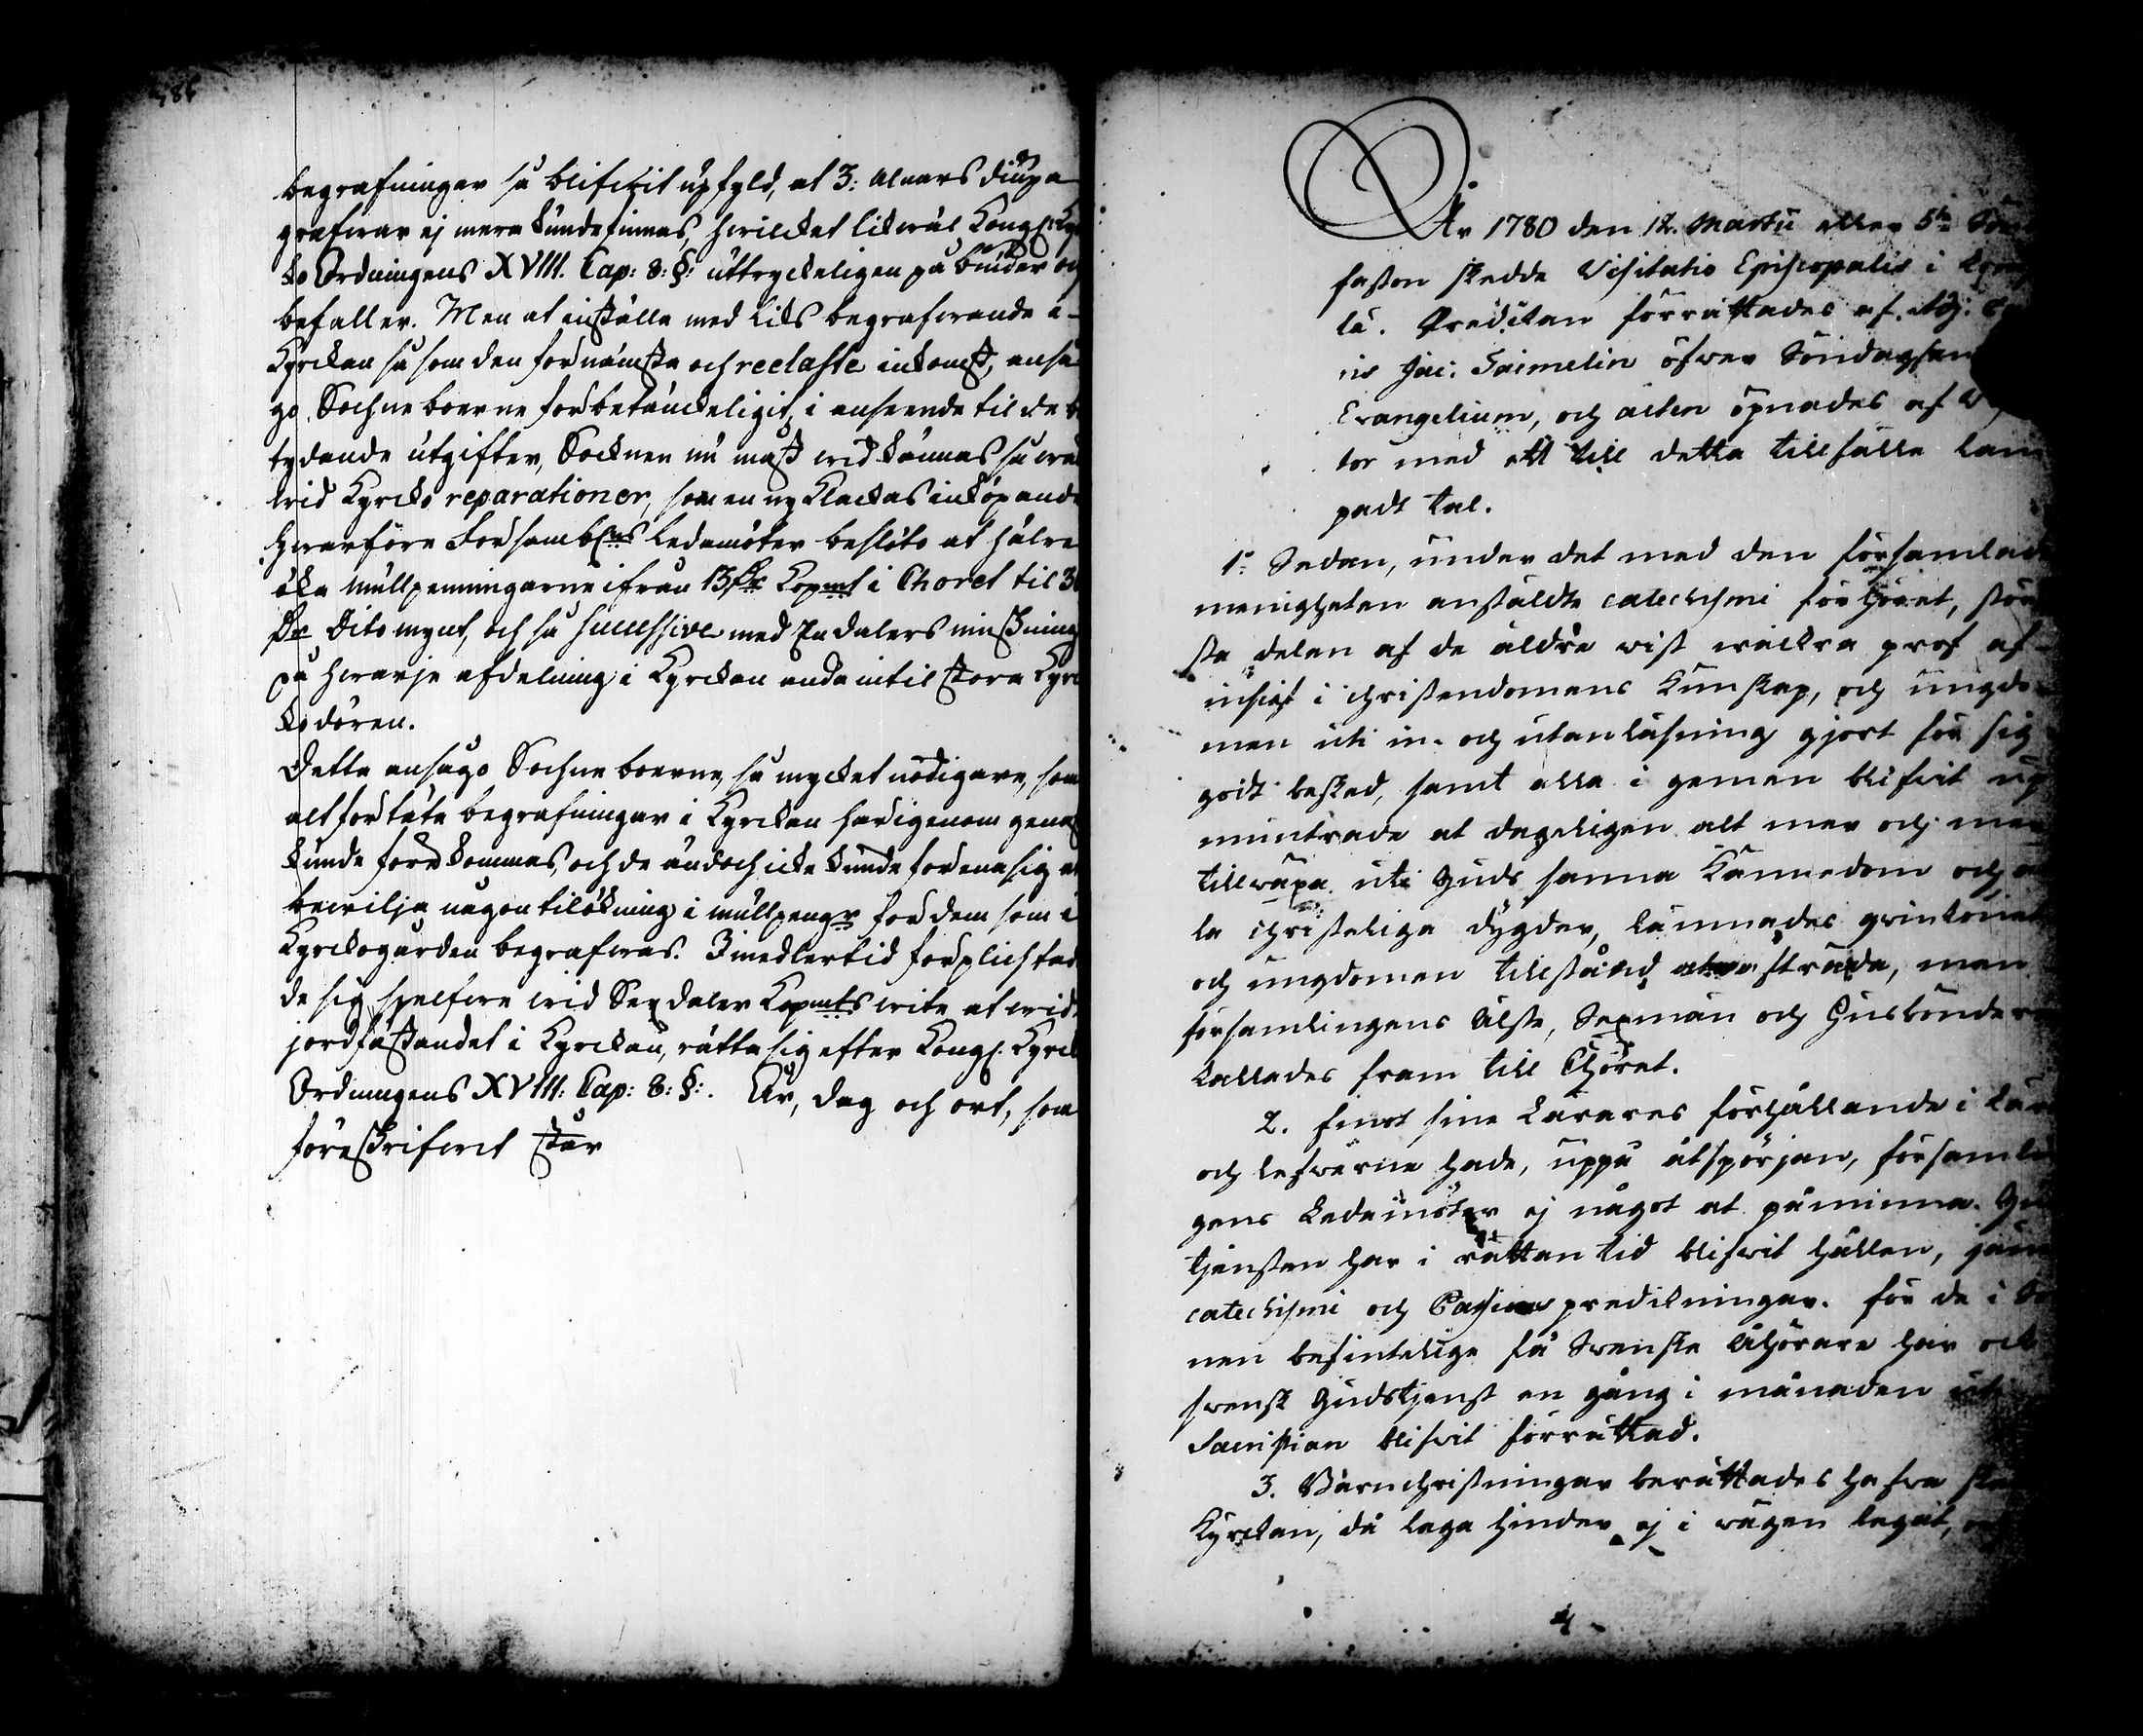 begrafningar så blifwit upfyld, at 3: alnars diupa
grafwar ej mera kunde finnas, hwilcket likwäl Kongl. Kyr
ko Ordningens XVIII. Cap: 8: §: uttryckeligen på biuder och
befaller. Men at inställa med Liks begrafwande i
Kyrckan så som den förnämsta och reelaste inkomst, anså
go Sochneboerne förbetänckeligit, i anseende til de be
tydande utgifter, Socknen nu måst widkännas så wäl
wid Kyrcko reparationer, som en ny Klackas inköpande
hwarföre Församblns Ledamöter beslöto at hälre
öka mullpenningarne ifrån 13 Dr Kopmt i Choret til 30
Dr Dito mynt, och så successive med En dalers minskning
på hwarje afdelning i Kyrckan ända intil stora Kyrc
kodören.
Detta ansågo Sochneboerne, så mycket nödigare, som
alt för täta begrafningar i Kyrckan härigenom genast
kunde förekommas, och de ändoch icke kunde förena sig at
bewilja någon tilökning i mullpengr för dem som i
Kyrckogården begrafwas. Imedlertid förplichtad
de sig sjelfwe wid Sex daler Kopmts wite at wid
jordfästandet i Kyrckan, rätta sig efter Kongl. Kyrck
Ordningens XVIII: Cap: 8: §:. År, dag och ort, som
föreskrifwet står
År 1780 den 12. Martii eller 5te Sön
fastan skedde Visitatio Episcopalis i
la. Predikan förrättades af Adj.
ris Jac: Saimelin öfwer Söndagsens
Evangelium, och acten öpnades af
tor med ett till detta tillfälle läm
padt tal.
1o Sedan, under det med den församlade
menigheten anstäldte catechismi förhöret, stör
sta delen af de äldre wist wackra prof af
insigt i christendomens kunskap, och ungdo
men uti in- och utanläsning gjort för sig
godt besked, samt alla i gemen blifwit up
muntrade at dageligen alt mer och mer
tillwäxa uti Guds sanna Kännedom och al
la christeliga dygder, lämnades qwinkönet
och ungdomen tillstånd afträda, men
församlingens Älste, Sexmän och Husbönder
kallades fram till Choret.
2. Emot sine Lärares förhållande i Lär
och lefwerne hade, uppå åtspörjan, församlin
gens Ledamöter ej något at påminna. Gu
tjensten har i rättan tid blifwit hållen, jäm
catechismi och Passions predikningar. För de i So
nen befintelige få Swenske Åhörare har ock
swensk Gudstjenst en gång i månaden uti
Sacristian blifwit förrättad.
3. Barnchristningar berättades hafwa ske
Kyrckan, då laga hinder ej i wägen legat,